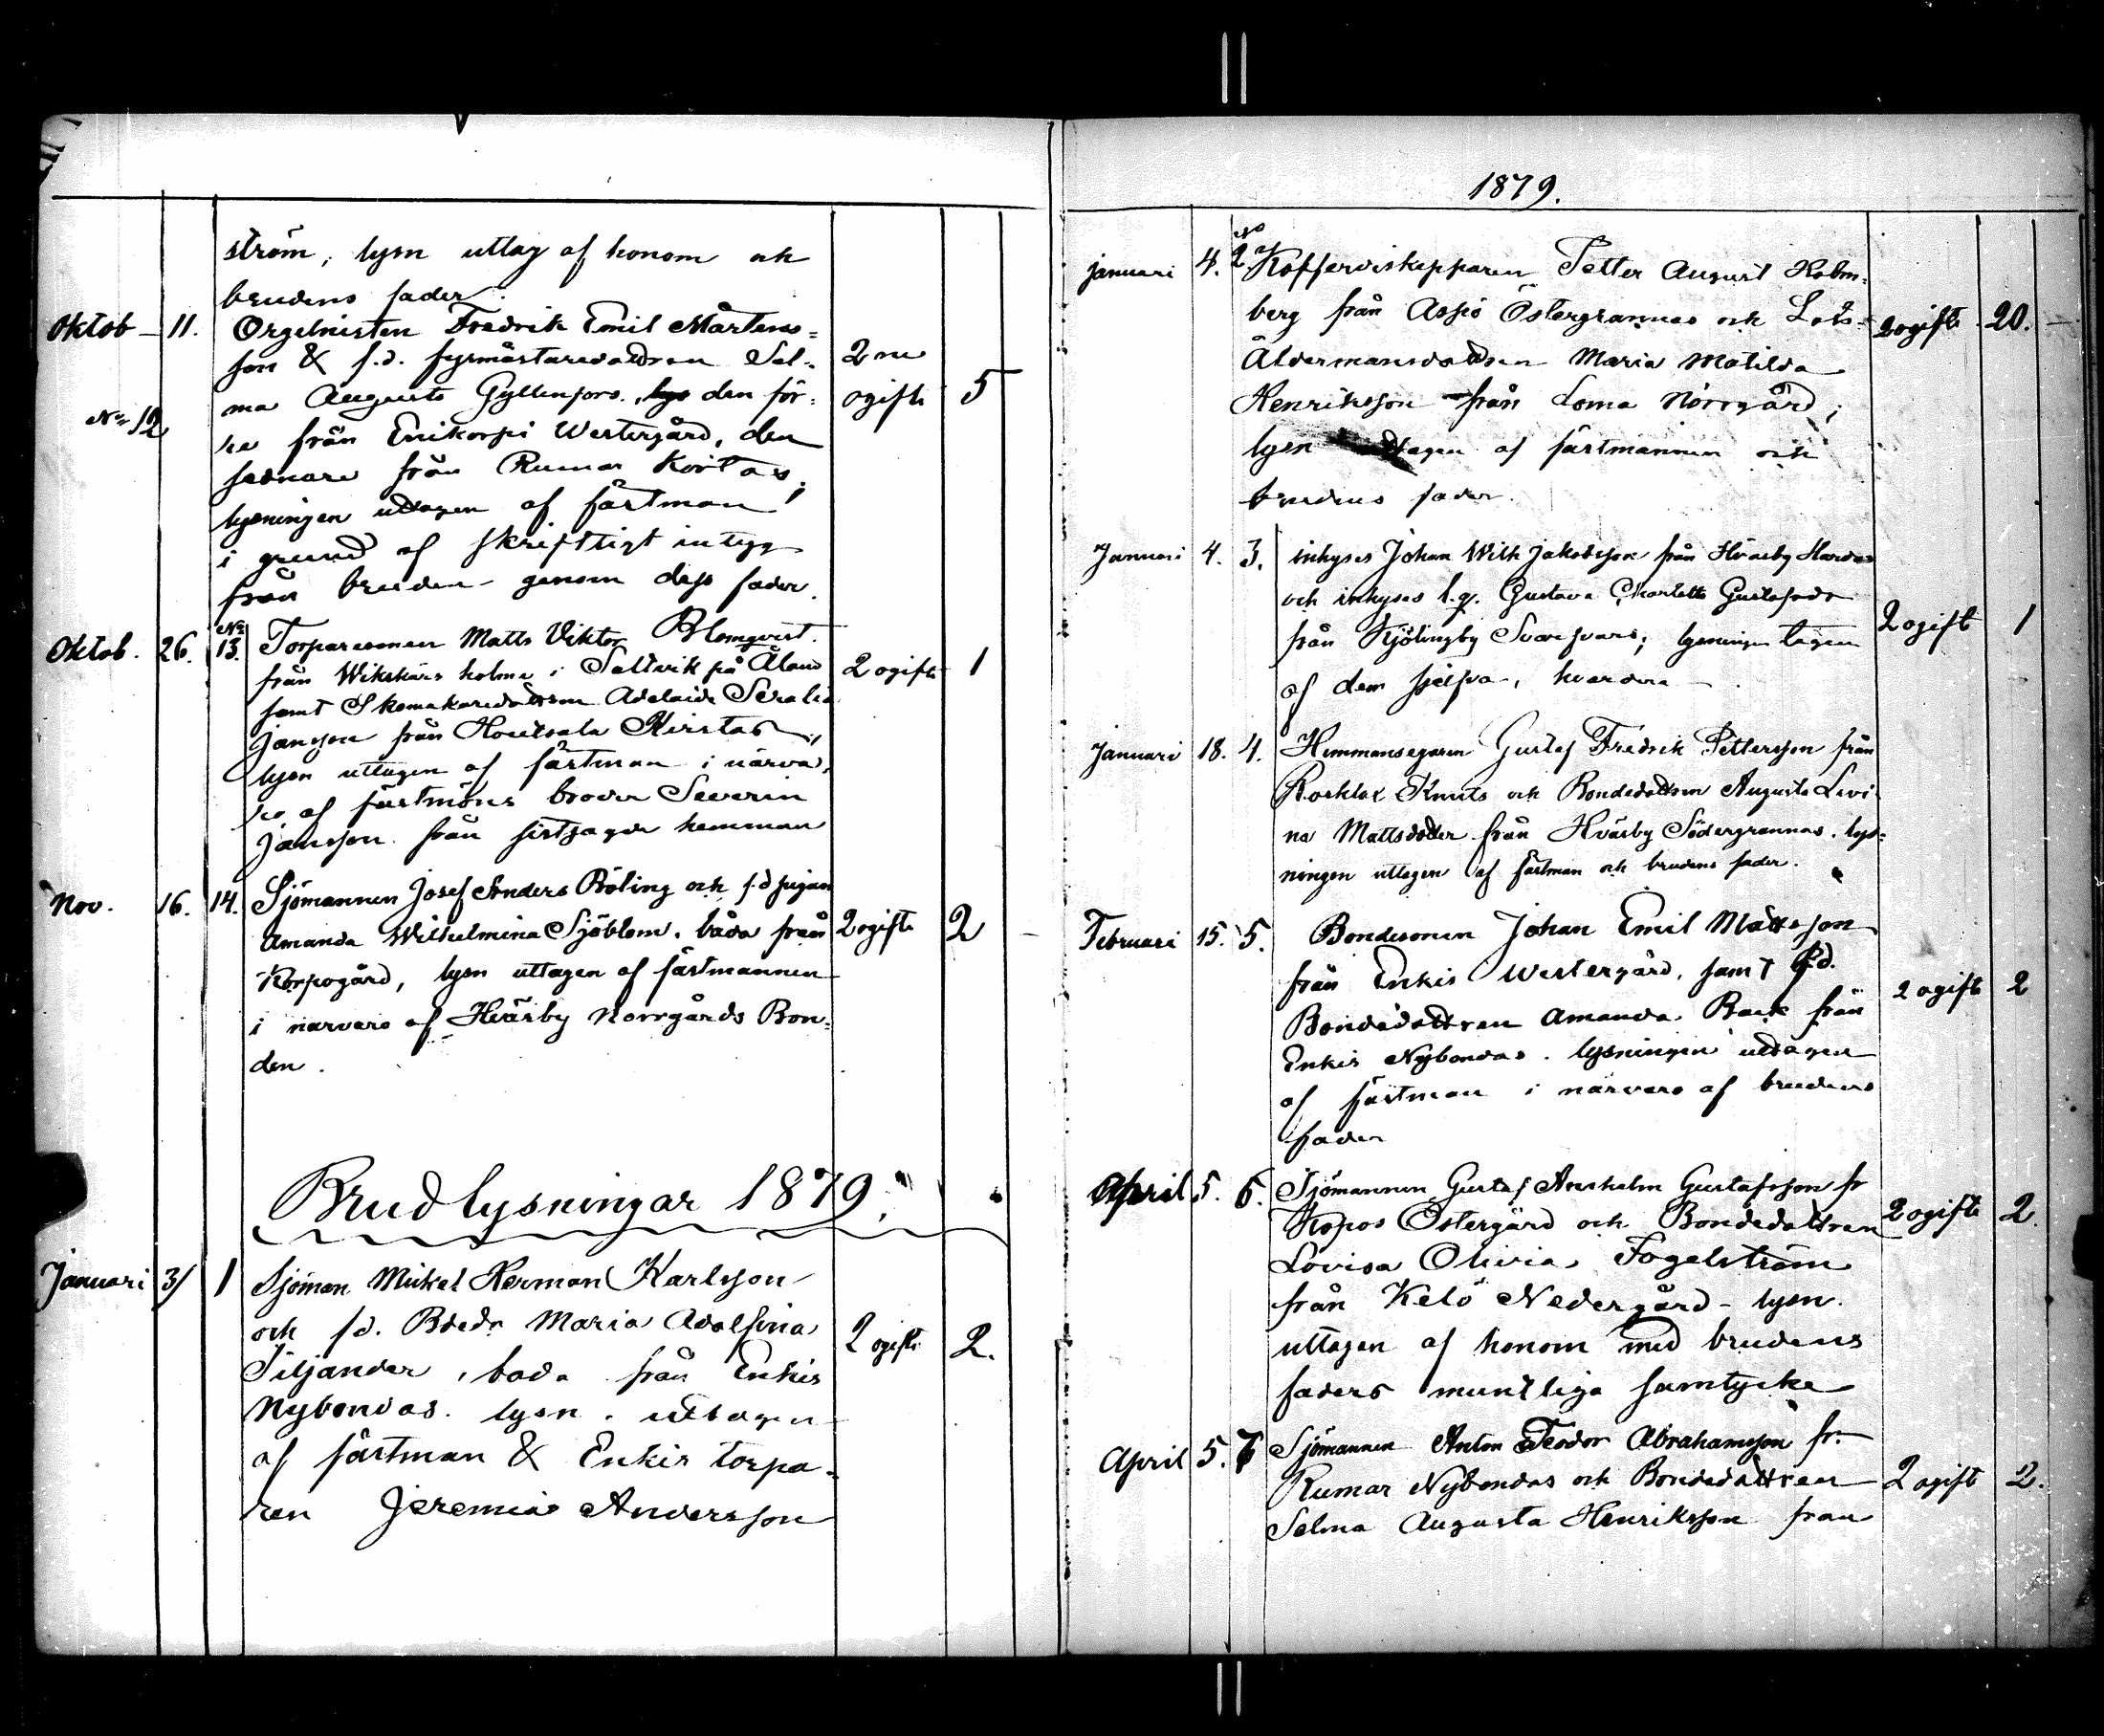 ström, lysn uttag af honom och
brudens fader.
Oktob - 11. Orgelnisten Fredrik Emil Mårtens-
son & f.d. fyrmästaredottren Sel- 2 ne
No 12 ma Augusta Gyllenfors, den för- ogifte 5
re från Enikorpi Westergård, den
sednare från Rumar Kortas,
lysningen uttagen af fästman
i grund af skriftligt intyg
från bruden genom dess fader.
Oktob. 26. No 13. Torparesonen Matts Viktor Blomqvist
från Wikskärs holme i Saltvik på Åland 2 ogifte 1
samt Skomakaredottren Adelaide Serafia
Jansson från Houtsala Kirstas,
lysn uttagen af fästman i närva-
ro af fästmöns broder Severin
Jansson från sistsagde hemman
Nov. 16. 14. Sjömannen Josef Anders Böling och f.d pigan
Amanda Wilhelmina Sjöblom, båda från 2 ogifte 2
Korpogård, lysn uttagen af fästmannen
i närvaro af Hväsby Norrgårds Bon-
den.
Brudlysningar 1879.
Januari 3/ 1 Sjöman Mickel Herman Karlsson
och fd. Bdedr Maria Adolfina
Siljander, bada från Enkis 2 ogifte 2.
Nybondas. lysn. uttagen
af fästman & Enkis torpa-
ren Jeremias Andersson
1879.
januari 4. No 2. Kofferdiskepparen Petter August Holm-
berg från Aspö Östergrannas och Lots- 2 ogifte 20.
Åldermansdottren Maria Matilda
Henriksson från Loma Norrgård;
lysn uttagen af fästmannen och
brudens fader.
Januari 4. 3. inhyses Johan Wilh Jakobsson från Hväsby Hardas
och inhyses l.q. Gustava Charlotta Gustafsdr
från Kjölingby Svarfvars; lysningen tagen 2 ogift 1
af dem sjelfva, hvardera
Januari 18. 4. Hemmansegaren Gustaf Fredrik Pettersson från
Rocklax Knuts och Bondedottren Augusta Levi-
na Mattsdoder från Hväsby Södergrannas. lys-
ningen uttagen af fästman och brudens fader.
Februari 15. 5. Bondesonen Johan Emil Mattsson
från Enkis Westergård, samt f.d. 2 ogift 2
Bondedottren Amanda Back från
Enkis Nybondas. lysningen uttagen
af fästman i närvaro af brudens
fader
April 5. 6. Sjömannen Gustaf Anshelm Gustafsson fr
Kopos Östergård och Bondedottren 2 ogifte 2.
Lovisa Olivia Fogelström
från Kelö Nedergård - lysn.
uttagen af honom med brudens
faders muntliga samtycke
April 5. 7 Sjömannen Anton Teodor Abrahamsson fr.
Rumar Nybondas och Bondedottren 2 ogift 2.
Selma Augusta Henriksson från